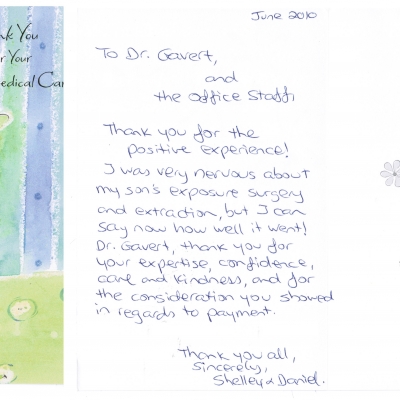 June 2010
nk You
r Your
edical Car
To Dr. Gavert,
and
the Office Staff,
Thank you for the
positive experience!
I was very nervous about
my son's exposure surgery
and extraction, but I can
say now how well it went!
Dr. Gavert, thank you for
your expertise, confidence,
care and kindness, and for
the consideration you showed
in regards to payment.
Thank you all,
Sincerely,
Shelley & Daniel.